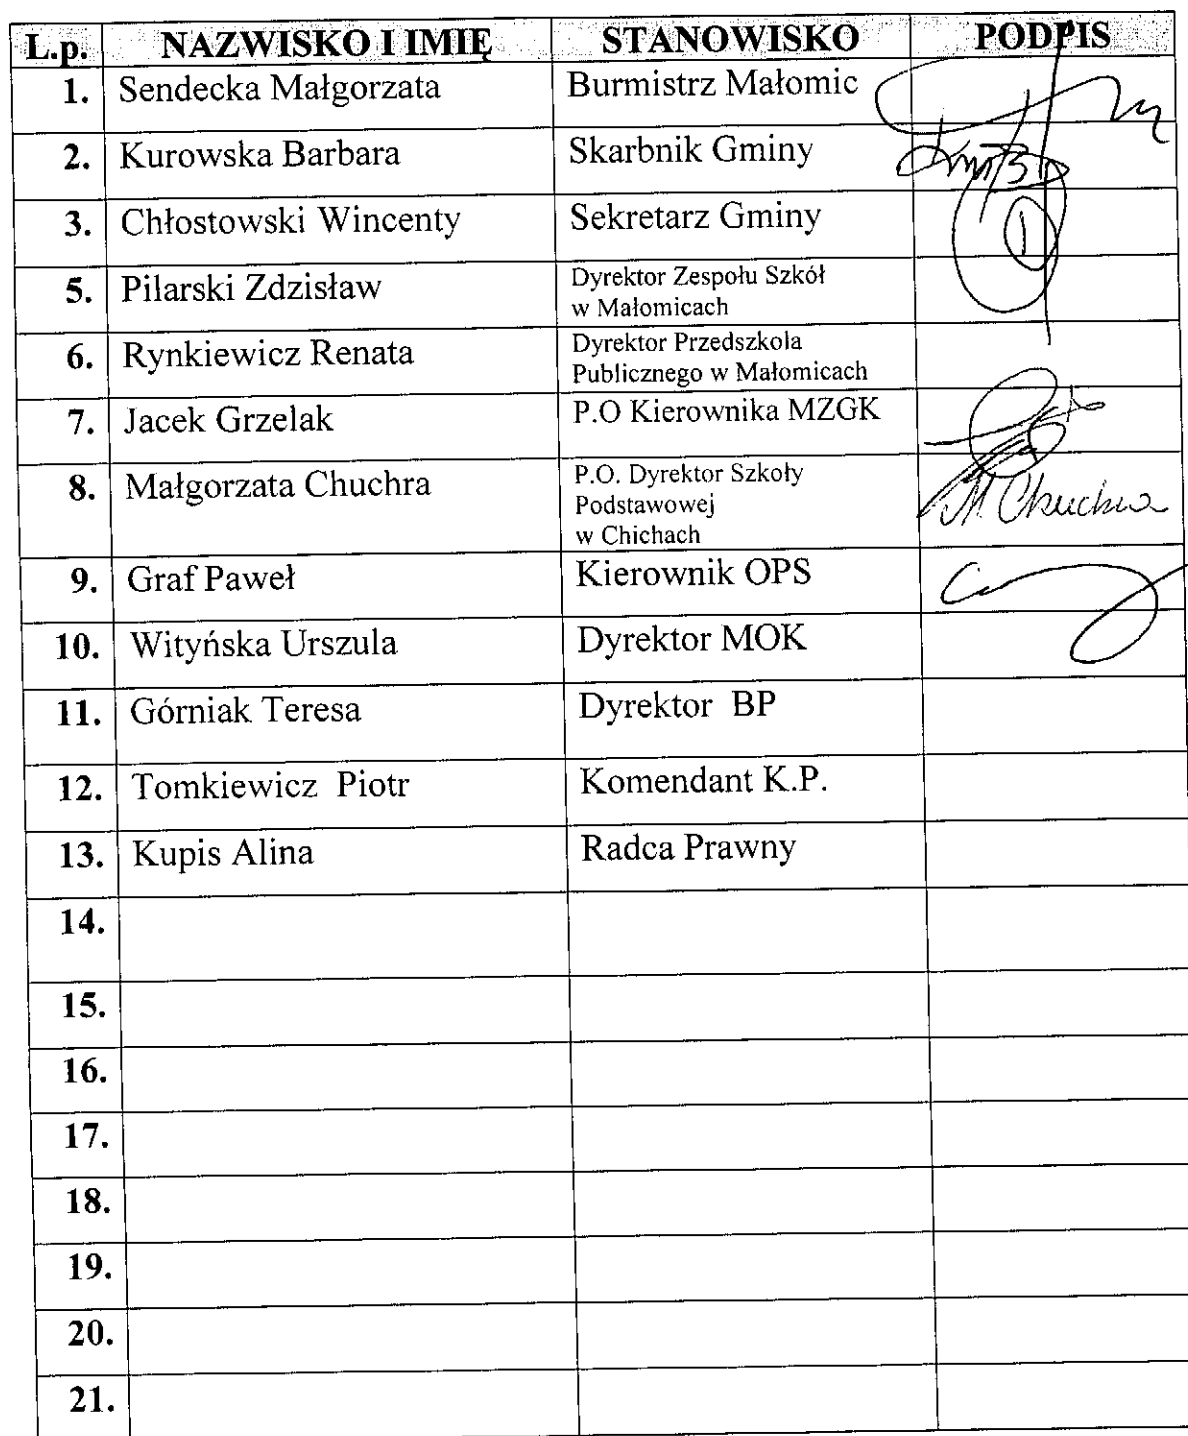 L.p. NAZWISKO I IMIĘ STANOWISKO PODPIS
1. Sendecka Małgorzata Burmistrz Małomic
2. Kurowska Barbara Skarbnik Gminy
3. Chłostowski Wincenty Sekretarz Gminy
5. Pilarski Zdzisław Dyrektor Zespołu Szkół
w Małomicach
6. Rynkiewicz Renata Dyrektor Przedszkola
Publicznego w Małomicach
7. Jacek Grzelak P.O Kierownika MZGK
8. Małgorzata Chuchra P.O. Dyrektor Szkoły
Podstawowej
w Chichach
M Chuchra
9. Graf Paweł Kierownik OPS
10. Wityńska Urszula Dyrektor MOK
11. Górniak Teresa Dyrektor BP
12. Tomkiewicz Piotr Komendant K.P.
13. Kupis Alina Radca Prawny
14.
15.
16.
17.
18.
19.
20.
21.